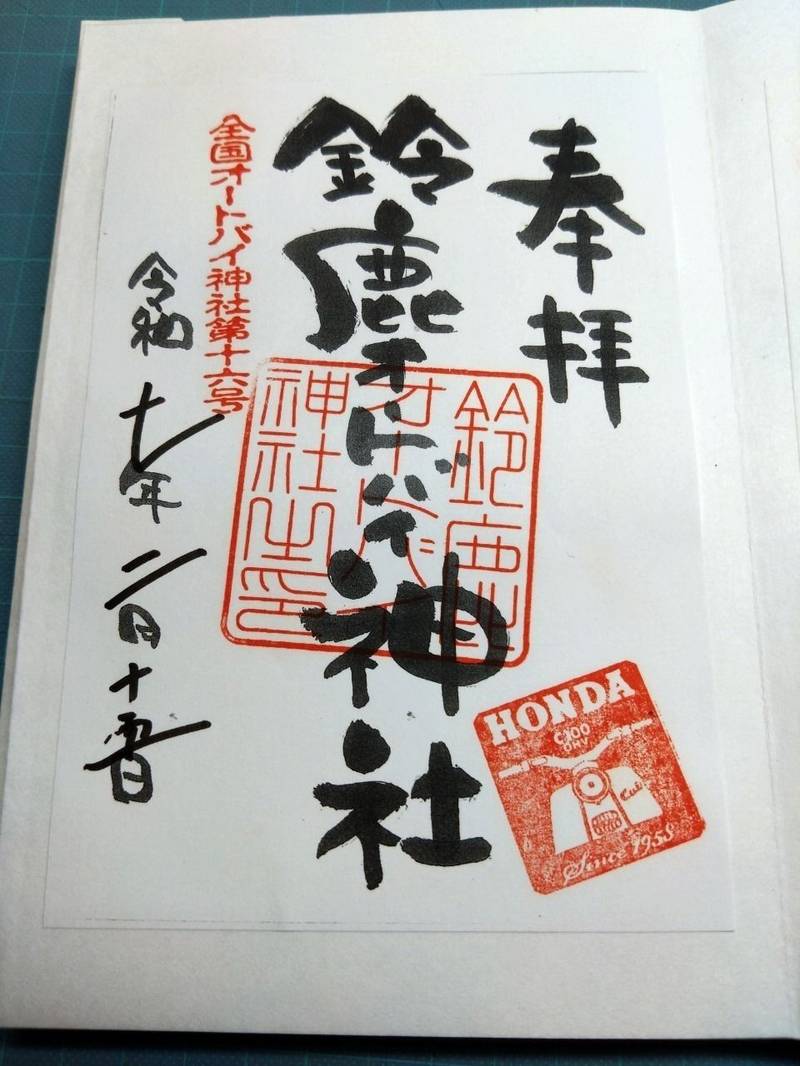 奉拝
鈴鹿オートバイ神社
鈴鹿
オートバイ
神社之印
全国オートバイ神社第十六号
令和七年二月十日
HONDA
C100
OHV
Cub
Since 1958